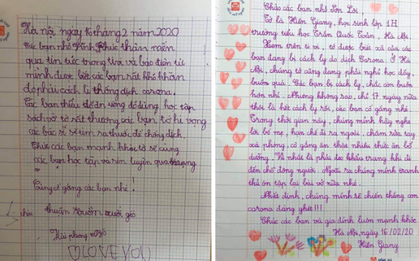 Hà Nội, ngày 16 tháng 2 năm 2020
bạn nhỏ Vĩnh Phúc thân mến
qua tin tức trong tivi và báo điện tử
mình được biết các bạn rất khó khăn
để phải cách li, thống dịch corona.
Các bạn thiếu đồ ăn uống đồ dùng học tập
sách vở tớ rất thương các bạn, tớ hi vọng
các bác sĩ sẽ tìm ra thuốc để chống dịch.
Chúc các bạn mạnh khỏe tớ sẽ cùng
các bạn học tập và rèn luyện qua
Cùng cố gắng các bạn nhé.
LOVE YOU
Chào các bạn nhỏ Sơn Lôi
Tớ là Hiền Giang, học sinh lớp 1H
trường tiểu học Trần Quốc Toản, Hà Nội.
Xem trên ti vi, tớ được biết cả xã của
bạn đang bị cách ly do dịch Corona. Ở Hà
Nội, chúng tớ cũng đang phải nghỉ học đấy
buồn quá. Các bạn bị cách ly, chắc còn buồn
hơn nhỉ. Nhưng không sao, chỉ 17 ngày nữa
thôi là hết cách ly rồi, các bạn cố gắng nhé.
Trong thời gian này, chúng mình hãy nghe
lời bố mẹ, hạn chế đi ra ngoài, chăm rửa tay
xà phòng, cố gắng ăn thật nhiều thức ăn bổ
dưỡng. Và nhớ là phải đeo khẩu trang khi đi
đến chỗ đông người. Ngoài ra chúng mình tranh
thủ ôn tập lại bài vở nữa nhé.
Nhất định, chúng mình sẽ chiến thắng con
corona đáng ghét!!!
Chúc các bạn và gia đình luôn mạnh khỏe.
Hà Nội, ngày 16/02/20
Hiền Giang